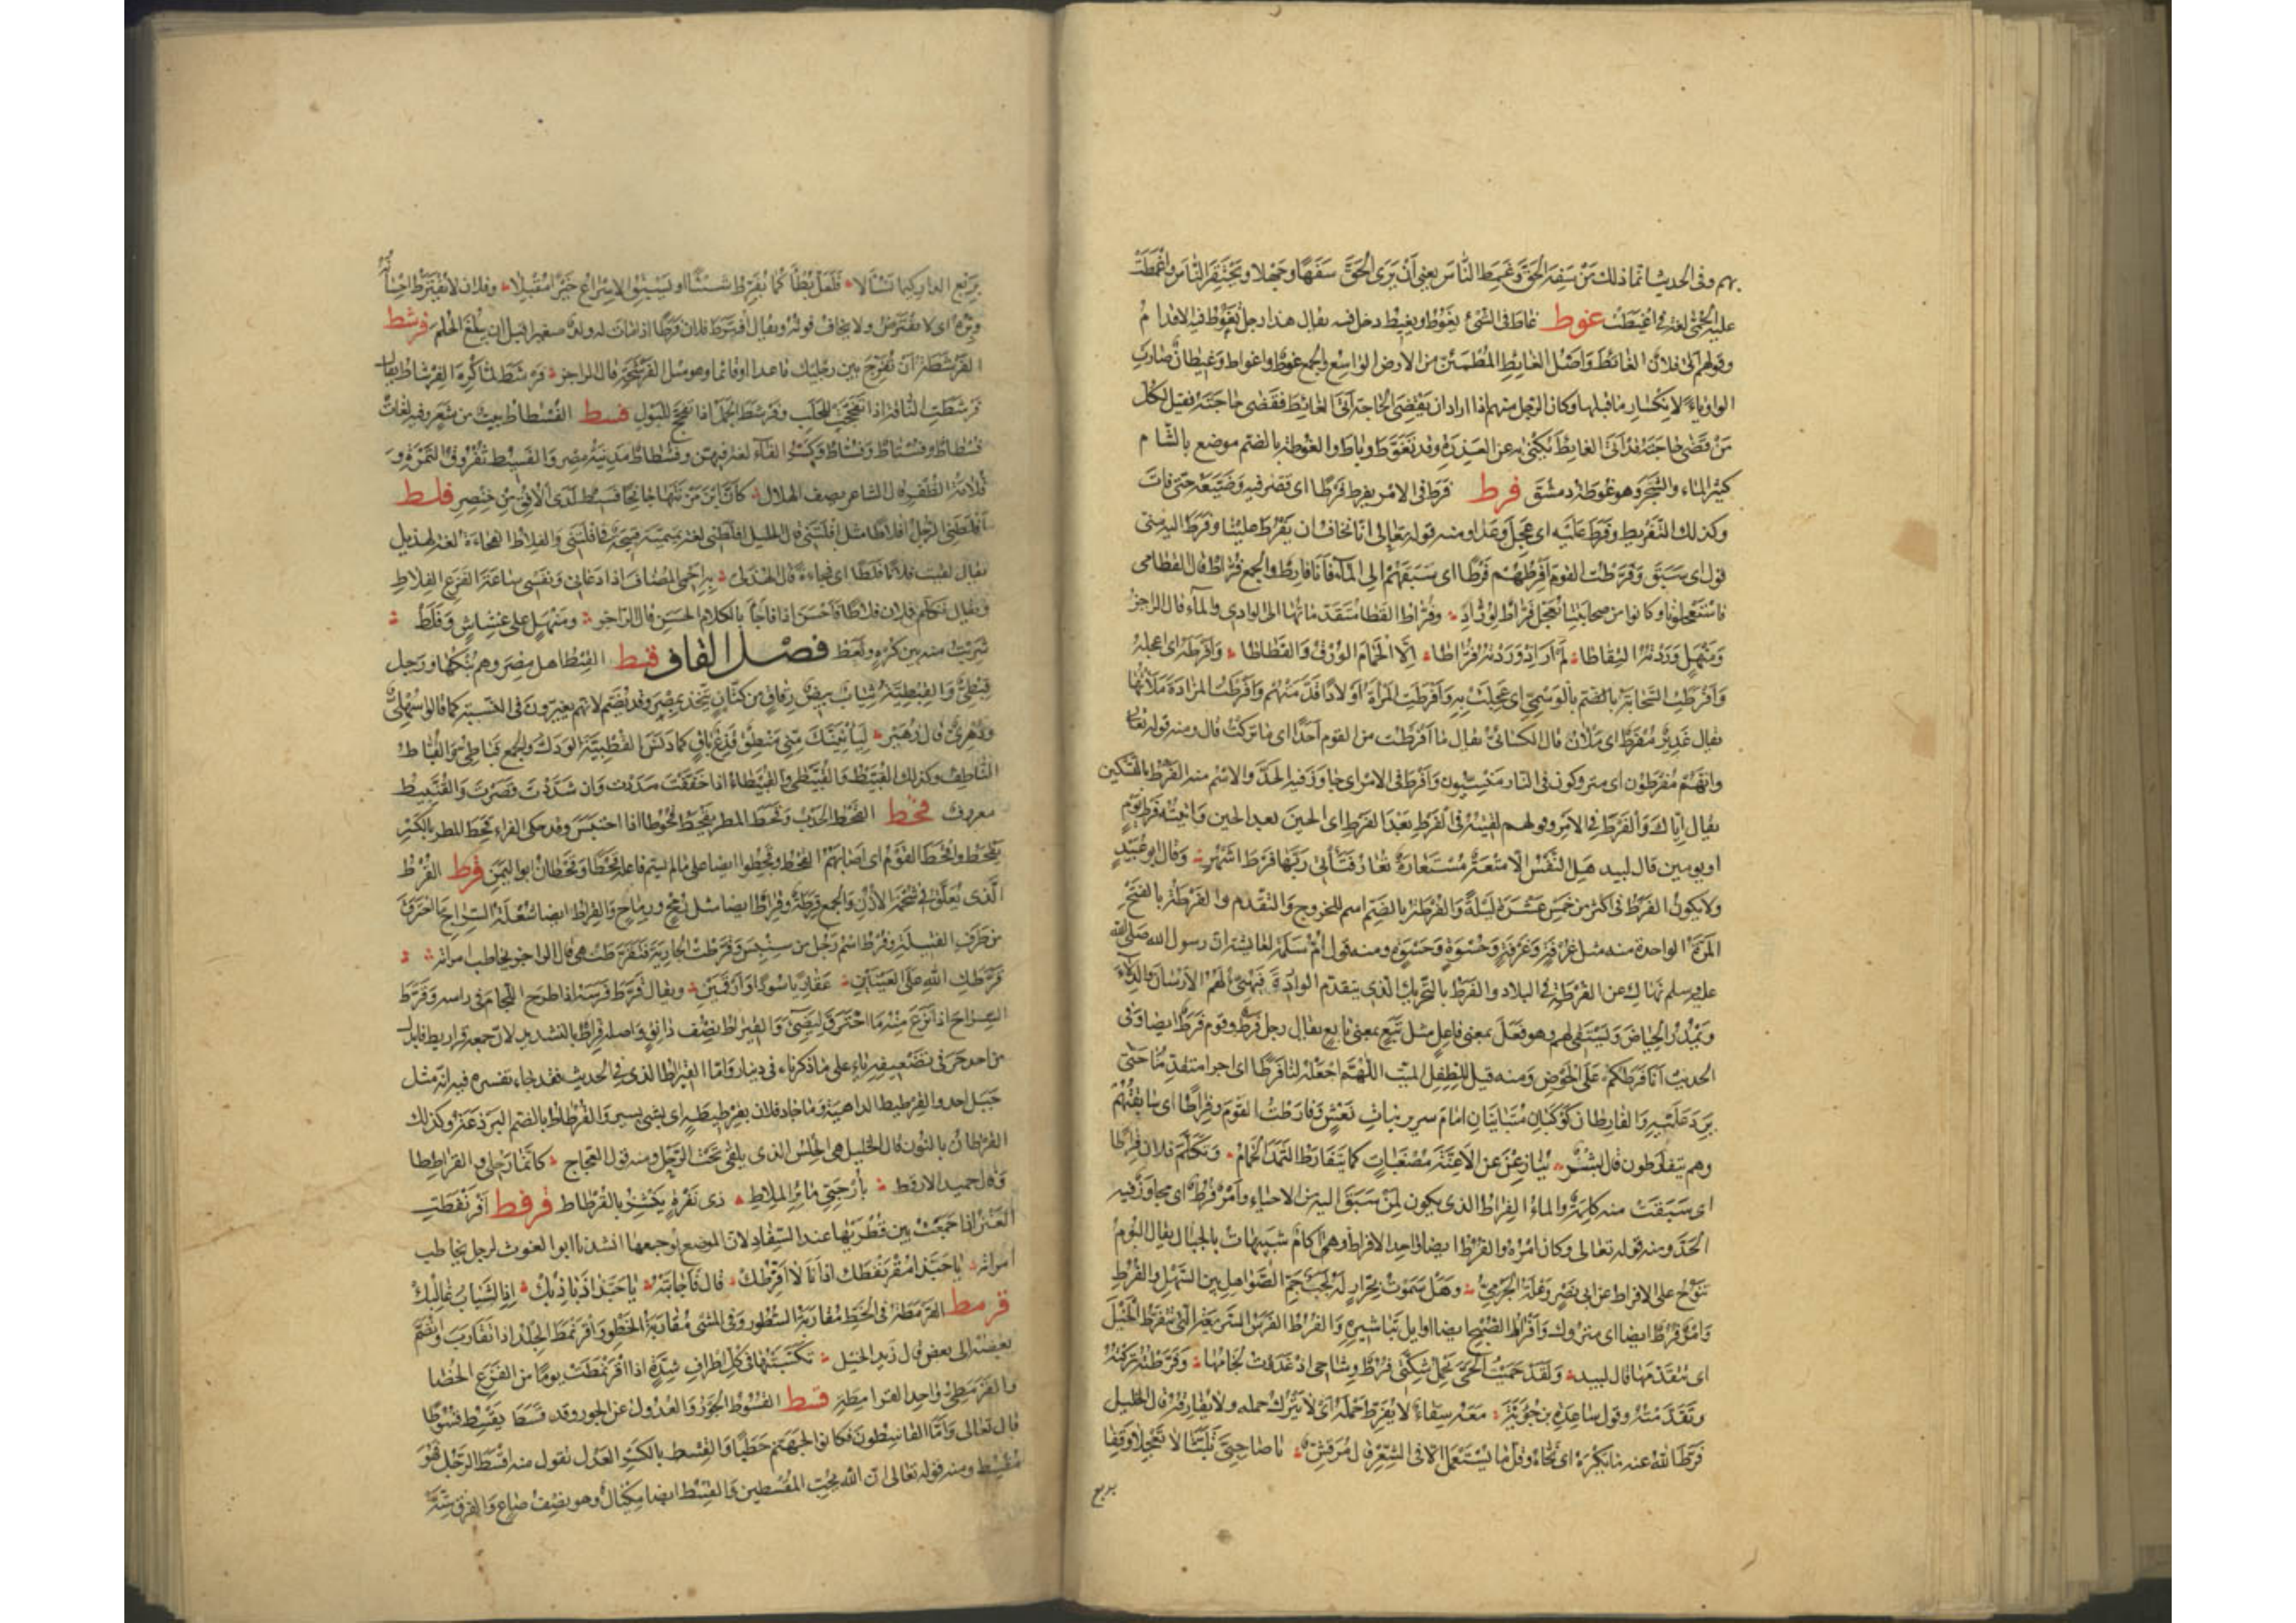 بهم وفى الحديث انما ذلك من سفه الحق وغمط الناس يعنى أن يرى الحق سفها وجهلا ويحتقر الناس واغمطت
عليه الحمى لغة فى اغبطت غوط غاط فى الشئ يغوط ويغيط دخل فيه يقال هذا رمل تغوط فيه الاقدام
وقولهم اتى فلان الغائط واصل الغايط المطمئن من الارض الواسع والجمع غوط واغواط وغيطان صارت
الواو ياء لانكسار ما قبلها وكان الرجل منهم اذا اراد ان يقضى الحاجة اتى الغائط فقضى حاجته فقيل لكل
من قضى حاجته قد اتى الغايط يكنى به عن العذرة وقد تغوط وباط والغوطة بالضم موضع بالشام
كثير الماء والشجر وهو غوطة دمشق فرط فرط فى الامر يفرط فرطا اى قصر فيه وضيعه حتى فات
وكذلك التفريط وفرط عليه اى عجل وعدا ومنه قوله تعالى اننا نخاف ان يفرط علينا وفرط اليه منى
قول اى سبق وفرطت القوم افرطهم فرطا اى سبقتهم الى الماء فانا فارط والجمع فراط قال القطامى
فاستعجلونا وكانوا من صحابتنا كما تعجل فراط لوراد وفراط القطا متقدماتها الى الوادى والماء قال الراجز
ومنهل وردته التقاطا لم ار اذ وردته فراطا الا الحمام الورق والغطاطا وافرطه اى اعجله
وافرطت السحابة بالوسمى اى عجلت به وافرطت المراة اولادا قدمتهم وافرطت المزادة ملأتها
يقال غدير مفرط اى ملآن قال الكسائى يقال ما افرطت من القوم احدا اى ما تركت قال ومنه قوله تعالى
وانهم مفرطون اى متروكون فى النار منسيون وافرط فى الامر اى جاوز فيه الحد والاسم منه الفرط بالتسكين
يقال اياك والفرط فى الامر وقولهم لقيته فى الفرط بعد الفرط اى الحين بعد الحين واتيته فرط يوم
او يومين قال لبيد هل النفس الا متعة مستعارة تعار فتأتى ربها فرط اشهر وقال ابو عبيد
ولا يكون الفرط فى اكثر من خمس عشرة ليلة والفرطة بالضم اسم للخروج والتقدم والفرطة بالفتح
المرة الواحدة منه مثل غرفة وغرفة وحسوة وحسوة ومنه قول ام سلمة لعايشة ان رسول الله صلى الله
عليه وسلم نهاك عن الفرطة فى البلاد والفرط بالتحريك الذى يتقدم الواردة فيهيئ لهم الارسان والدلاء
ويمدر الحياض ويستقى لهم وهو فعل بمعنى فاعل مثل تبع بمعنى تابع يقال رجل فرط وقوم فرط ايضا وفى
الحديث انا فرطكم على الحوض ومنه قيل للطفل الميت اللهم اجعله لنا فرطا اى اجرا متقدما حتى
نرد عليه والفارطان كوكبان متباينان امام سرير بنات نعش وفارطت القوم فراطا اى سابقتهم
وهم يتفارطون قال بشر ينازعن الاعنة مصغيات كما يتفارط الثمد الحمام وتكلم فلان فراطا
اى سبقت منه كلمة والماء الفراط الذى يكون لمن سبق اليه من الاحياء وامر فرط اى مجاوز فيه
الحد ومنه قوله تعالى وكان امره والفرط ايضا واحد الافراط وهى آكام شبيهات بالجبال يقال البوم
تنوح على الافراط عن ابى نصر وعلة الجرمى وهل سموت بجرار له لجب جم الصواهل بين السهل والفرط
وامر فرط ايضا اى متروك وافراط الصبح ايضا اوايل تباشيره والفرط الفرس السريعة التى تتفرط الخيل
اى تتقدمها قال لبيد ولقد حميت الحى تحمل شكتى فرط وشاحى اذ غدوت لجامها وفرطته تركته
وتقدمته وقول ساعدة بن جؤية معه سقاء لا يفرط حمله اى لا يترك حمله ولا يفارقه قال الخليل
فرط الله عنه ما يكره اى نحاه وقل ما يستعمل الا فى الشعر قال مرقش يا صاحبى تلبثا لا تعجلا وقفا
بربع
بربع الدار كيما تسألا فلعل بطأكما يفرط شيئا او يسبق الاسراع خيرا مقبلا وفلان لا يفترط احسانه
وبره اى لا يفترص ولا يخاف فوته ويقال افترط فلان فرطا اذا مات له ولد صغير قبل ان يبلغ الحلم فرشط
الفرشطة ان تفرج بين رجليك قاعدا او قائما وهو مثل الفرشحة قال الراجز فرشط لما كره الفرشاط يقال
فرشطت الناقة اذا تفحجت للحلب وفرشط الجمل اذا تفحج للبول فسط الفسطاط بيت من شعر وفيه لغات
فسطاط وفستاط وفساط وكسر الفاء لغة فيهن وفسطاط مدينة مصر والفسيط ثفروق التمرة و
قلامة الظفر قال الشاعر يصف الهلال كأن ابن مزنتها جانحا فسيط لدى الافق من خنصر فلط
افلطنى الرجل افلاطا مثل افلتنى قال الخليل افلطنى لغة تميمية قبيحة فى افلتنى والفلاط الفجاءة لغة لهذيل
يقال لقيت فلانا فلطا اى فجاءة قال الهذلى به احمى المضاف اذا دعانى ونفسى ساعة الفزع الفلاط
ويقال تكلم فلان فلاطا فاحسن اذا فاجأ بالكلام الحسن قال الراجز ومنهل على غشاش وفلط
شربت منه بين كره ولعط فصل القاف قبط القبط اهل مصر وهم بنكها ورجل
قبطى والقبطية ثياب بيض رقاق من كتان يتخذ بمصر وقد يضم لانهم يغيرون فى النسبة كما قالوا سهلى
ودهرى قال زهير ليأتينك منى منطق قذع باق كما دنس القبطية الودك والجمع قباطى والقباط
الناطف وكذلك القبيط والقبيطى والقبيطاء اذا خففت مددت وان شددت قصرت والقنبيط
معروف قحط القحط الجدب وقحط المطر يقحط قحوطا اذا احتبس وقد حكى الفراء قحط المطر بالكسر
يقحط واقحط القوم اى اصابهم القحط وقحطوا ايضا على ما لم يسم فاعله قحطا وقحطان ابو اليمن قرط القرط
الذى يعلق فى شحمة الاذن والجمع قرطة وقراط ايضا مثل رمح ورماح والقراط ايضا شعلة السراج ما احترق
من طرف الفتيلة وقرط اسم رجل من سنبس وقرطت الجارية فتقرطت هى قال الراجز يخاطب امراته
قرطك الله على العينين عقاربا سودا وارقمين ويقال قرط فرسه اذا طرح اللجام فى راسه وقرط
السراج اذا نزع منه ما احترق ليضئ والقيراط نصف دانق واصله قراط بالتشديد لان جمعه قراريط فابدل
من احد حرفى تضعيفه ياء على ما ذكرناه فى دينار واما القيراط الذى فى الحديث فقد جاء تفسيره فيه انه مثل
جبل احد والقرطيط الداهية وما جاد فلان بقرطيطة اى بشى يسير والقرطاط بالضم البرذعة وكذلك
القرطان بالنون قال الخليل هى الحلس الذى يلقى تحت الرحل ومنه قول العجاج كانما رحلى والقراططا
وقال حميد الارقط بأرحبى مائر الملاط ذى زفرة ينشز بالقرطاط قرفط اقرنفطت
العنز اذا جمعت بين قطريها عند السفاد لان الموضع يوجعها انشدنا ابو الغوث لرجل يخاطب
امراته يا حبذا مقرنفطك اذ انا لا افرطك قال فاجابته يا حبذا ذباذبك اذ الشباب غالبك
قرمط القرمطة فى الخط مقاربة السطور وفى المشى مقاربة الخطو واقرنمط الجلد اذا تقارب وانضم
بعضه الى بعض قال زيد الخيل تكسبتها فى كل اطراف شدة اذا اقرنمطت يوما من الفزع الخصا
والقرمطى واحد القرامطة قسط القسوط الجور والعدول عن الحق وقد قسط يقسط قسوطا
قال تعالى واما القاسطون فكانوا لجهنم حطبا والقسط بالكسر العدل تقول منه اقسط الرجل فهو
مقسط ومنه قوله تعالى ان الله يحب المقسطين والقسط ايضا مكيال وهو نصف صاع والفرق ستة